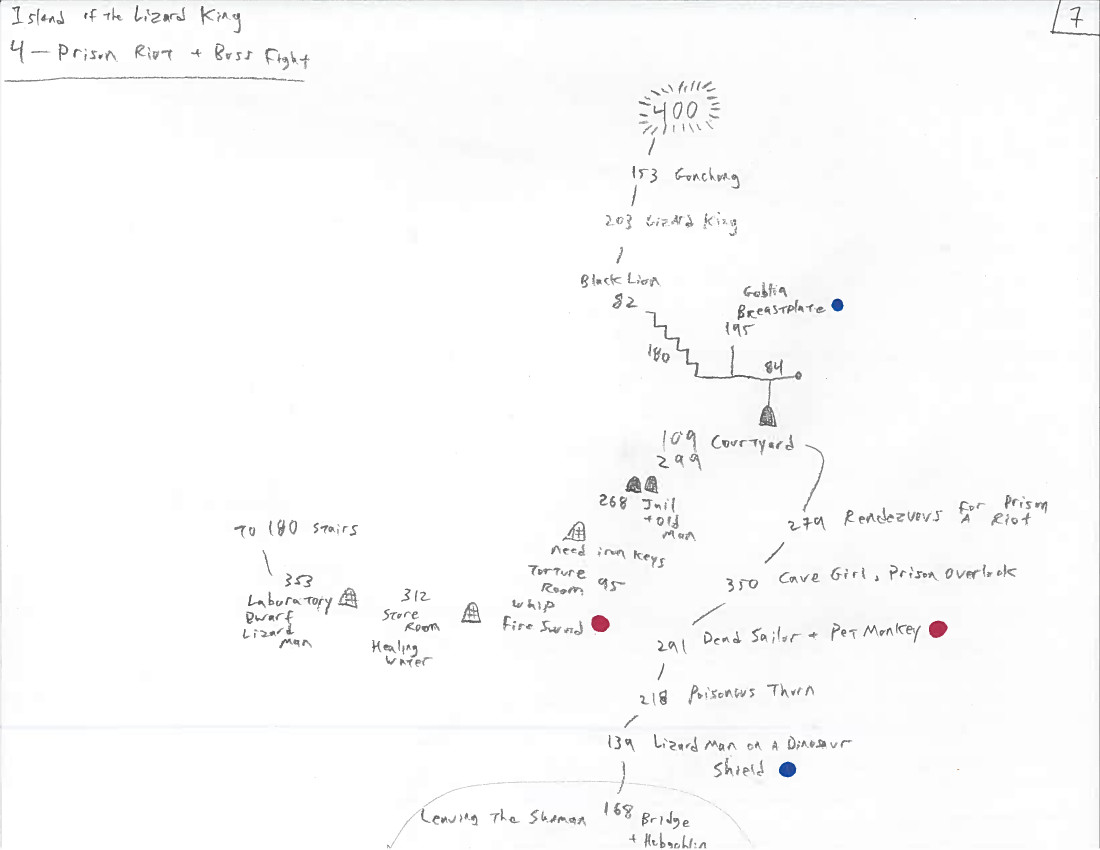 Island of the Lizard King
7
4 - Prison Riot + Boss Fight
400
153 Gonchong
203 Lizard King
Black Lion
82
Goblin
Breastplate
195
180
84
109 Courtyard
299
268 Jail
+ Old
Man
279 Rendezvous For Prison
A Riot
need iron keys
To 180 Stairs
350 Cave Girl, Prison Overlook
Torture 95
Room
Whip
Fire Sword
353
Laboratory
Dwarf
Lizard
Man
312
Store
Room
Healing
Water
291 Dead Sailor + Pet Monkey
218 Poisonous Thorn
139 Lizard Man on A Dinosaur
Shield
Leaving The Shaman
168 Bridge
+ Hobgoblin